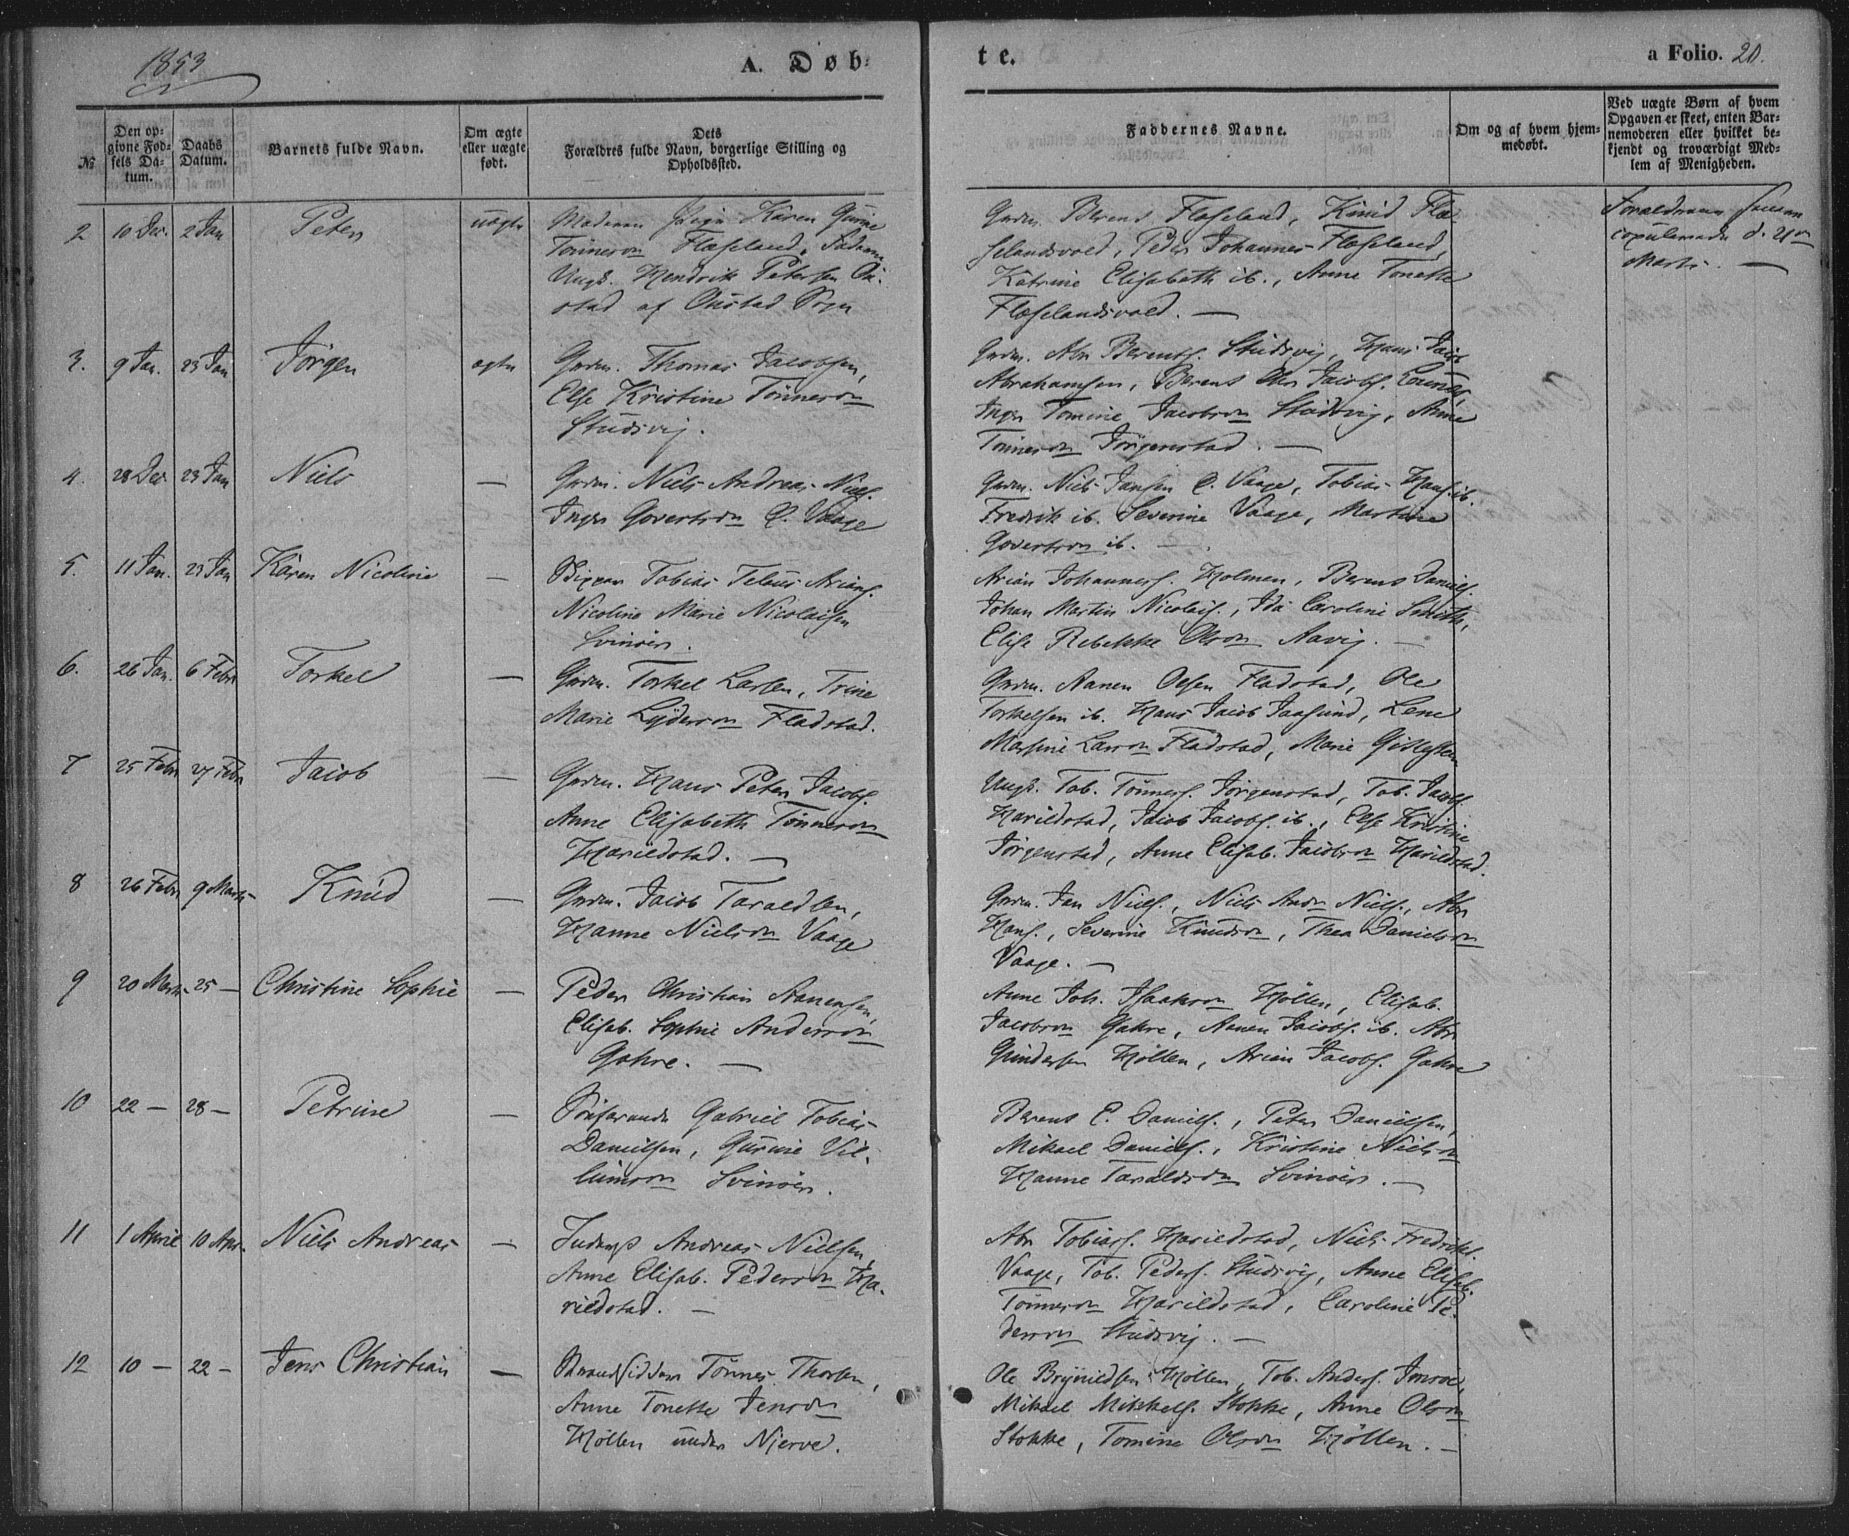 1853
A. Døb
te.
a Folio. 20.
№
Den op-
givne Fød-
sels Da-
tum.
Daabs
Datum.
Barnets fulde Navn.
Om ægte
eller uægte
født.
Dets
Forældres fulde Navn, borgerlige Stilling og
Opholdssted.
Faddernes Navne.
Om og af hvem hjem-
medøbt.
Ved uægte Børn af hvem
Opgaven er skeet, enten Bar-
nemoderen eller hvilket be-
kjendt og troværdigt Med-
lem af Menigheden.
2 10 Dec. 2 Jan Peter uægte
Karen Gurine
Tönnesdn Flæseland,
Ungk. Hendrik Petersen Ou-
stad af Oustad Sogn
Grdm. Berent Flæseland, Knud Flæ
selandsvold, Peder Johannes Flæseland,
Katrine Elisabeth ib., Anne Tonette
Flæselandsvold. —
Forældrene
copulerede d. 21de
Marts. —
3. 9 Jan. 23 Jan Jörgen ægte
Grdm. Thomas Jacobsen,
Else Kristine Tönnesdn
Studsvig.
Grdm. Abr Berents. Studsvig, Hans Jacob
Abrahamsen, Berent Jacobs.
Inger Tomine Jacobsdn Studsvig, Anne
Tönnesdn Jörgenstad. —
4. 28 Dec 23 Jan Niels —
Grdm. Niels Andreas Niels.
Inger Govertsdn Ö. Vaage
Grdm. Niels Jansen Ö. Vaage, Tobias Hans. ib.
Fredrik ib. Severine Vaage, Martine
Govertsdn ib. —
5. 11 Jan. 23 Jan Karen Nicoline —
Skipper Tobias Teleus Arians.
Nicoline Marie Nicolaisen
Svinöer.
Arian Johannes. Holmen, Berent Daniels.
Johan Martin Nicolais., Ida Caroline Smith,
Elise Rebekke Olsdn Aavig. —
6. 26 Jan. 6 Febr Torkel —
Grdm. Torkel Larsen, Trine
Marie Lydersdn Fladstad.
Grdm. Aanen Olsen Fladstad, Ole
Torkelsen ib. Hans Jacob Jaasund, Lene
Martine Larsdn Fladstad, Marie
7 25 Febr 27 Febr Jacob —
Grdm. Hans Peter Jacobs.
Anne Elisabeth Tönnesdn
Harildstad. —
Ungk. Tob. Tönnes. Jörgenstad, Tob. Jacobs
Harildstad, Jacob Jacobs. ib., Else Kristine
Jörgenstad, Anne Elisab. Jacobsdn Harildstad.
8 26 Febr 9 Marts Knud —
Grdm. Jacob Taraldsen,
Hanne Nielsdn Vaage
Grdm. Jan Niels., Niels Andr Niels., Abr
Hans., Severine Knudsdn, Thea Danielsdn
Vaage. —
9 20 Marts 25 — Christine Sophie —
Peder Christian Aanensen,
Elisab. Sophie Andersdn
Gahre. —
Anne Joh. Isaaksdn Höllen, Elisab.
Jacobsdn Gahre, Aanen Jacobs. ib. Abr
Gundersen Höllen, Arian Jacobs. Gahre
10 22 — 28 — Petrine —
Söefarende Gabriel Tobias
Danielsen, Gurine Vil-
lumsdn Svinöer.
Berent C. Daniels., Peter Danielsen,
Mikael Daniels., Kristine Nielsdn
Hanne Taraldsdn Svinöer. —
11 1 April 10 Apr. Niels Andreas —
Inderst Andreas Nielsen,
Anne Elisab. Pedersdn Ha-
rildstad. —
Abr Tobias. Harildstad, Niels Fredriks.
Vaage, Tob. Peders. Studsvig, Anne Elisab.
Tönnesdn Harildstad, Caroline Pe-
dersdn Studsvig. —
12 10 — 22 — Jens Christian —
Strandsidder Tönnes Thorsen,
Anne Tonette Jensdn
Höllen under Njerve.
Ole Brynildsen Höllen, Tob. Anders. Imröe,
Mikael Mikkels. Stokke, Anne Olsdn
Stokke, Tomine Olsdn Höllen. —